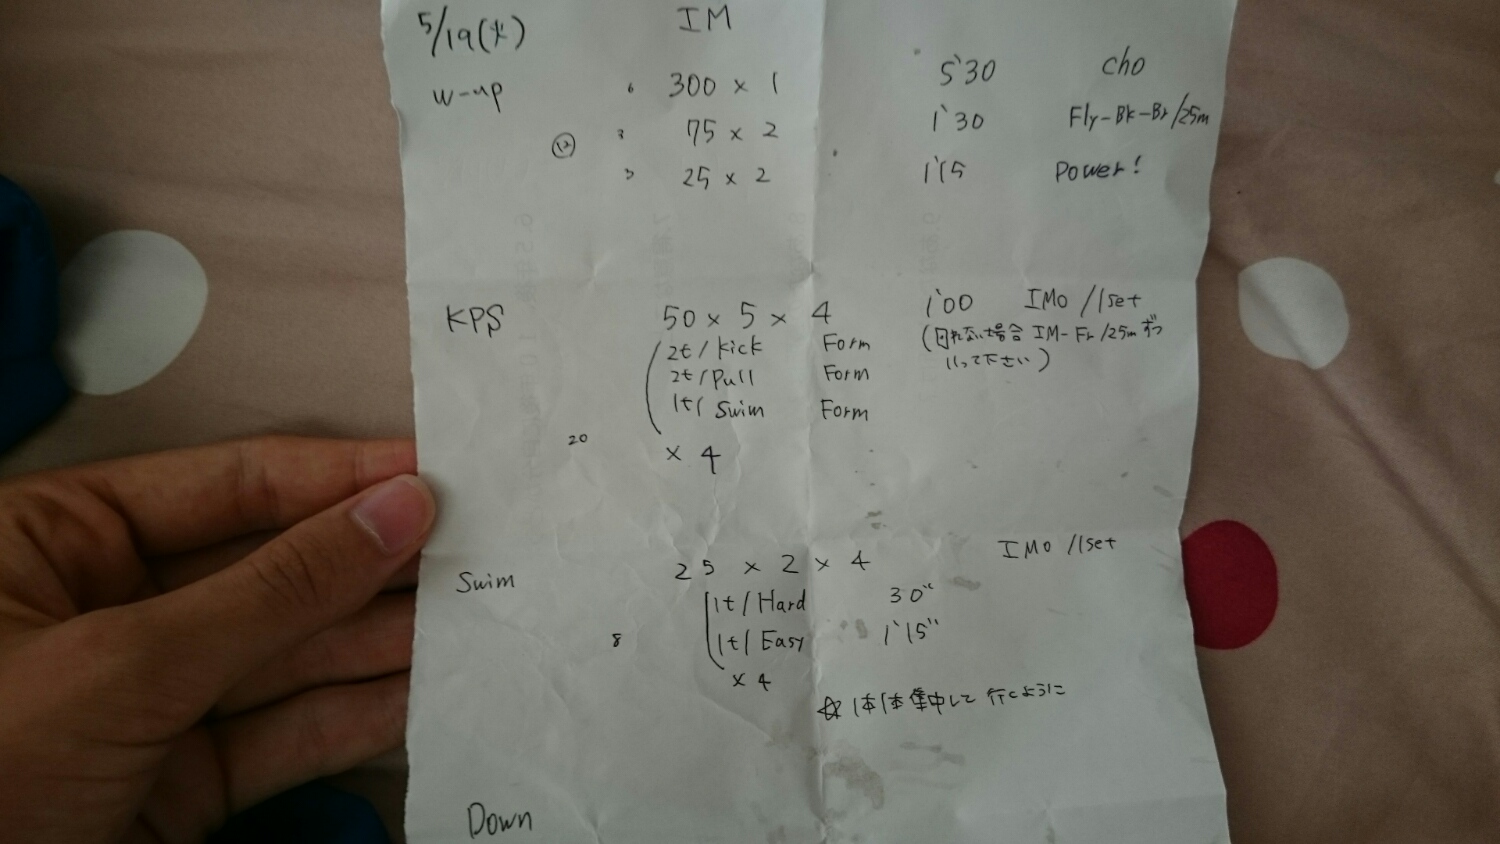 5/19(火) IM
W-up 6 300 × 1 5'30 cho
3 75 × 2 1'30 Fly-Bk-Br/25m
⑫
3 25 × 2 1'15 Power!
KPS 50 × 5 × 4 1'00 IMO /1set
2t/kick Form (回れない場合 IM-Fr/25mずつ
2t/Pull Form いって下さい)
1t/Swim Form
20 × 4
Swim 25 × 2 × 4 IMO /1set
1t/Hard 30"
8 1t/Easy 1'15"
× 4
☆1本1本集中して行くように
Down